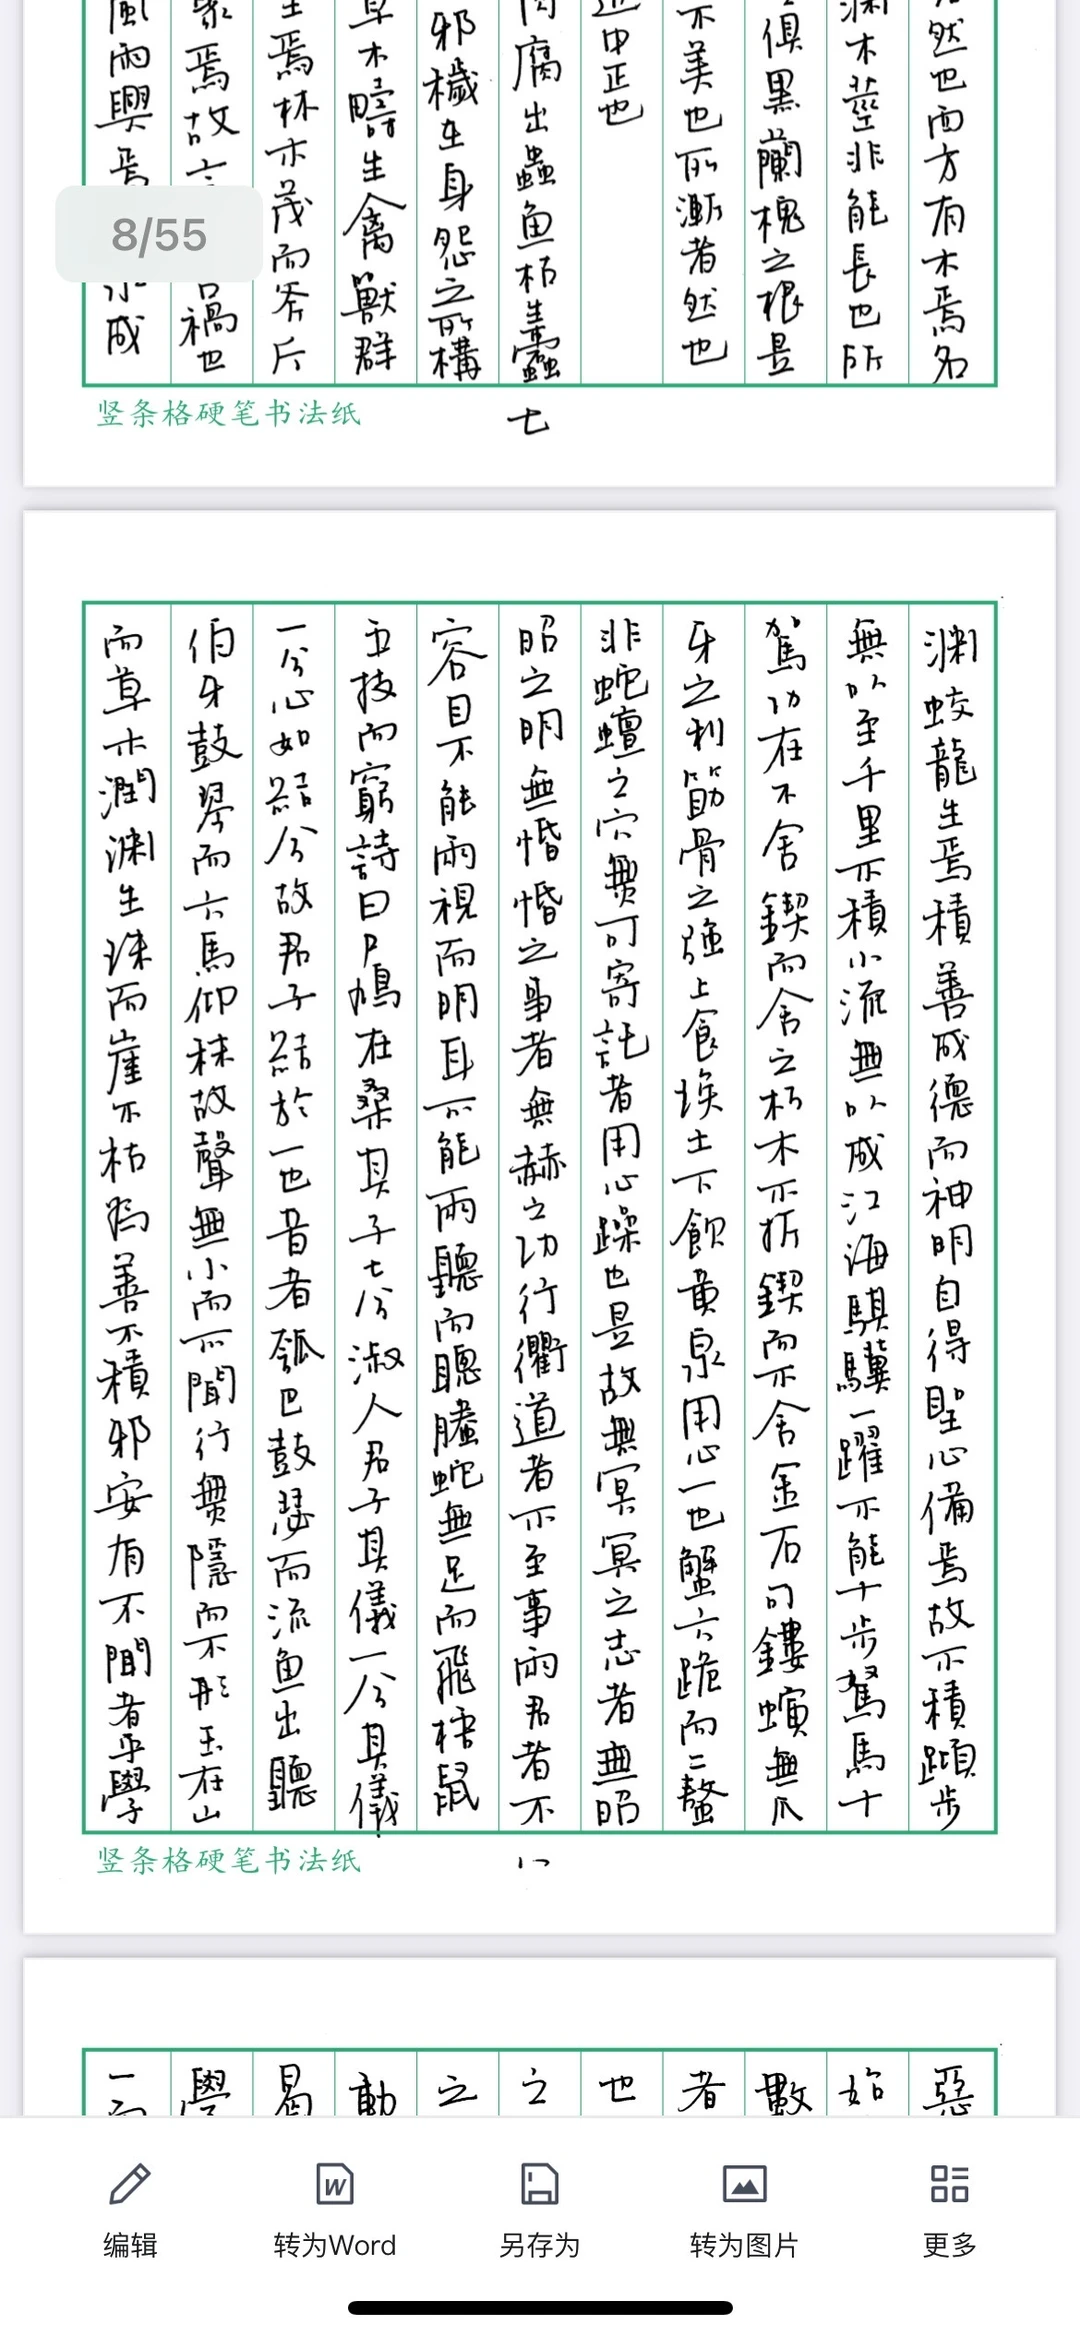 然也西方有木焉名
淵木莖非能長也所
俱黑蘭槐之根是
不美也所漸者然也
中正也
肉腐出蟲魚枯生蠹
邪穢在身怨之所構
草木疇生禽獸群
生焉林木茂而斧斤
焉故言禍也
風雨興焉成
竖条格硬笔书法纸
七
8/55
淵蛟龍生焉積善成德而神明自得聖心備焉故不積蹞步
無以至千里不積小流無以成江海騏驥一躍不能十步駑馬十
駕功在不舍鍥而舍之朽木不折鍥而不舍金石可鏤螾無爪
牙之利筋骨之強上食埃土下飲黃泉用心一也蟹六跪而二螯
非蛇蟺之穴無可寄託者用心躁也是故無冥冥之志者無昭
昭之明無惛惛之事者無赫之功行衢道者不至事兩君者不
容目不能兩視而明耳不能兩聽而聰螣蛇無足而飛梧鼠
五技而窮詩曰尸鳩在桑其子七兮淑人君子其儀一兮其儀
一兮心如結兮故君子結於一也昔者瓠巴鼓瑟而流魚出聽
伯牙鼓琴而六馬仰秣故聲無小而不聞行無隱而不形玉在山
而草木潤淵生珠而崖不枯為善不積邪安有不聞者乎學
竖条格硬笔书法纸
八
惡
始
數
者
也
之
之
動
曷
學
一而
编辑
转为Word
另存为
转为图片
更多